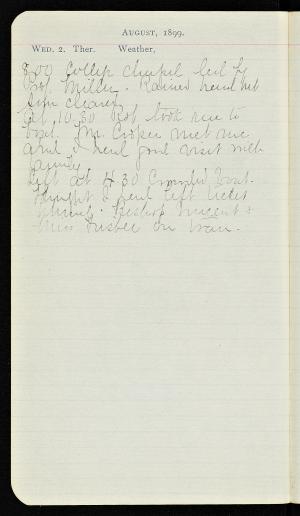 August, 1899.
Wed. 2. Ther. Weather,
8.00 College chapel led by
Prof. Miller. Rained hard but
soon cleared
At 10.30 took
boat. Mr. Cooper met me
and I had good visit with
family
Left at 4.30 Crowded boat.
Thought I had left
Bishop Vincent &
Miss on train.